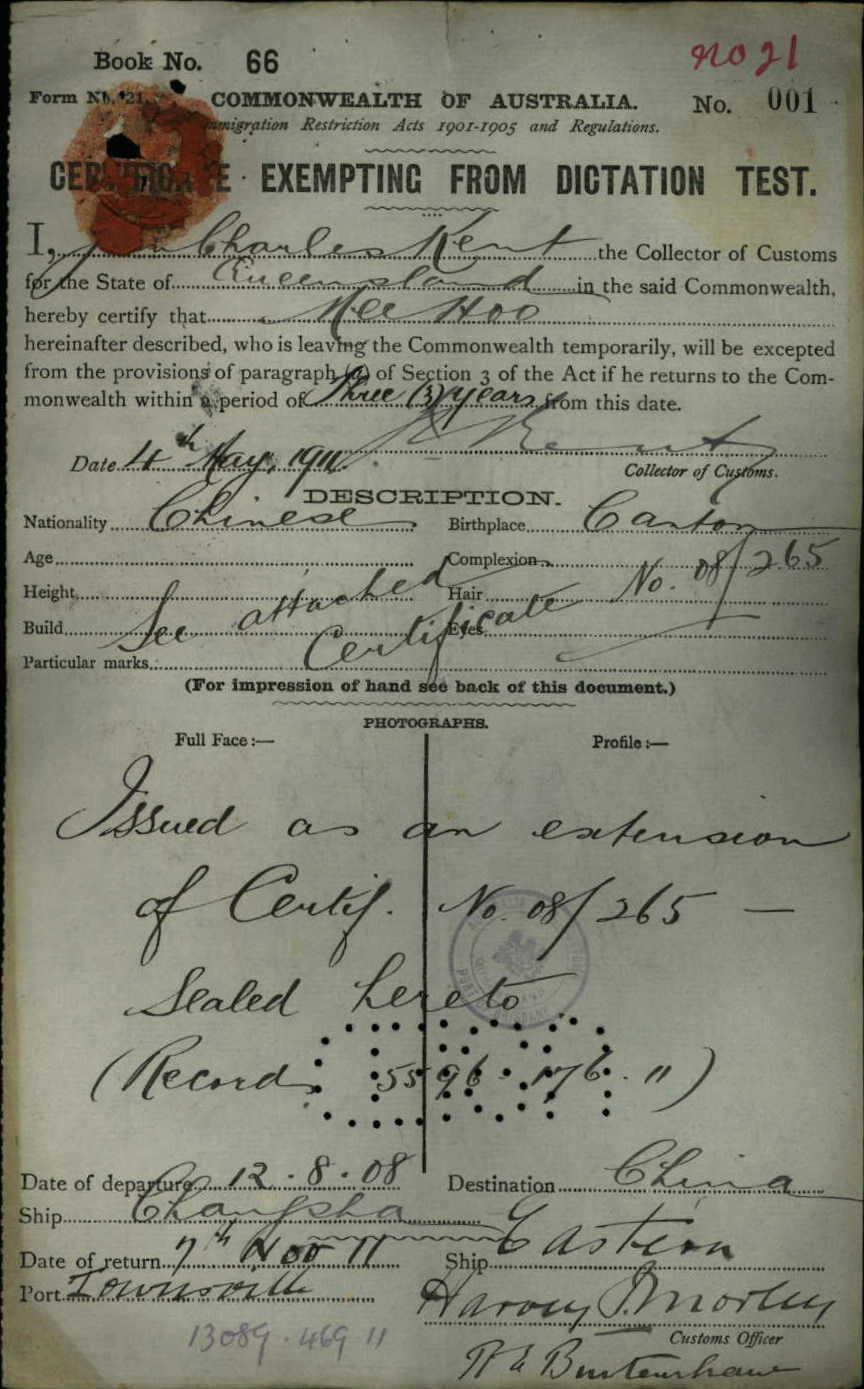 Book No. 66
no 21
Form No. 21.
COMMONWEALTH OF AUSTRALIA.
No. 001
Immigration Restriction Acts 1901-1905 and Regulations.
CERTIFICATE EXEMPTING FROM DICTATION TEST.
I, John Charles Kent the Collector of Customs
for the State of Queensland in the said Commonwealth,
hereby certify that Mee Hoo
hereinafter described, who is leaving the Commonwealth temporarily, will be excepted
from the provisions of paragraph (a) of Section 3 of the Act if he returns to the Com-
monwealth within a period of Three (3) years from this date.
Date 4th May, 1911. Kent
Collector of Customs.
DESCRIPTION.
Nationality Chinese Birthplace Canton
Age Complexion
Height Hair
Build Eyes
See attached Certificate No. 08/265
Particular marks
(For impression of hand see back of this document.)
PHOTOGRAPHS.
Full Face :— Profile :—
Issued as an extension
of Certif. No. 08/265 —
Sealed hereto
(Record 5596-176.11)
Date of departure 12.8.08 Destination China
Ship Changsha
Date of return 7th Nov 11 Ship Eastern
Port Townsville Harvey Morley
Customs Officer
13089.469 11